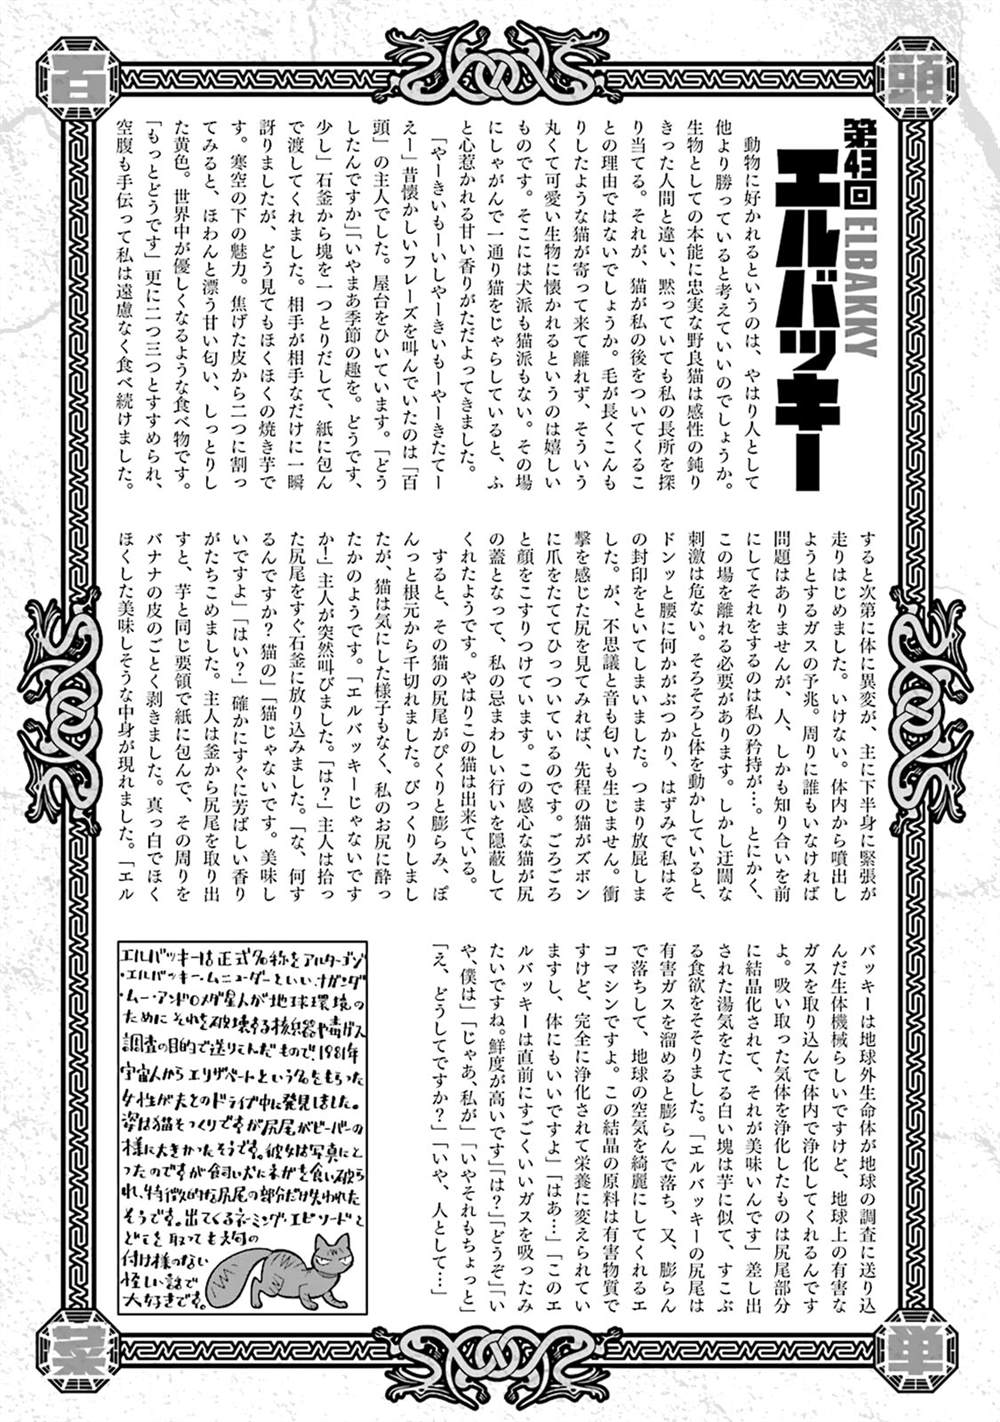 百
頭
菜
単
第43回
エルバッキー
ELBAKKY
動物に好かれるというのは、やはり人として
他より勝っていると考えていいのでしょうか。
生物としての本能に忠実な野良猫は感性の鈍り
きった人間と違い、黙っていても私の長所を探
り当てる。それが、猫が私の後をついてくるこ
との理由ではないでしょうか。毛が長くこんも
りしたような猫が寄って来て離れず、そういう
丸くて可愛い生物に懐かれるというのは嬉しい
ものです。そこには犬派も猫派もない。その場
にしゃがんで一通り猫をじゃらしていると、ふ
と心惹かれる甘い香りがただよってきました。
「やーきいもーいしやーきいもーやーきたてー
えー」昔懐かしいフレーズを叫んでいたのは「百
頭」の主人でした。屋台をひいています。「どう
したんですか」「いやまあ季節の趣を。どうです、
少し」石釜から塊を一つとりだして、紙に包ん
で渡してくれました。相手が相手なだけに一瞬
訝りましたが、どう見てもほくほくの焼き芋で
す。寒空の下の魅力。焦げた皮から二つに割っ
てみると、ほわんと漂う甘い匂い、しっとりし
た黄色。世界中が優しくなるような食べ物です。
「もっとどうです」更に二つ三つとすすめられ、
空腹も手伝って私は遠慮なく食べ続けました。
すると次第に体に異変が、主に下半身に緊張が
走りはじめました。いけない。体内から噴出し
ようとするガスの予兆。周りに誰もいなければ
問題はありませんが、人、しかも知り合いを前
にしてそれをするのは私の矜持が…。とにかく、
この場を離れる必要があります。しかし迂闊な
刺激は危ない。そろそろと体を動かしていると、
ドンッと腰に何かがぶつかり、はずみで私はそ
の封印をといてしまいました。つまり放屁しま
した。が、不思議と音も匂いも生じません。衝
撃を感じた尻を見てみれば、先程の猫がズボン
に爪をたててひっついているのです。ごろごろ
と顔をこすりつけています。この感心な猫が尻
の蓋となって、私の忌まわしい行いを隠蔽して
くれたようです。やはりこの猫は出来ている。
すると、その猫の尻尾がぴくりと膨らみ、ぽ
んっと根元から千切れました。びっくりしまし
たが、猫は気にした様子もなく、私のお尻に酔っ
たかのようです。「エルバッキーじゃないです
か！」主人が突然叫びました。「は？」主人は拾っ
た尻尾をすぐ石釜に放り込みました。「な、何す
るんですか？猫の」「猫じゃないです。美味し
いですよ」「はい？」確かにすぐに芳ばしい香り
がたちこめました。主人は釜から尻尾を取り出
すと、芋と同じ要領で紙に包んで、その周りを
バナナの皮のごとく剥きました。真っ白でほく
ほくした美味しそうな中身が現れました。「エル
バッキーは地球外生命体が地球の調査に送り込
んだ生体機械らしいですけど、地球上の有害な
ガスを取り込んで体内で浄化してくれるんです
よ。吸い取った気体を浄化したものは尻尾部分
に結晶化されて、それが美味いんです」差し出
された湯気をたてる白い塊は芋に似て、すこぶ
る食欲をそそりました。「エルバッキーの尻尾は
有害ガスを溜めると膨らんで落ち、又、膨らん
で落ちして、地球の空気を綺麗にしてくれるエ
コマシンですよ。この結晶の原料は有害物質で
すけど、完全に浄化されて栄養に変えられてい
ますし、体にもいいですよ」「はあ…」「このエ
ルバッキーは直前にすごくいいガスを吸ったみ
たいですね。鮮度が高いです」「は？」「どうぞ」「い
や、僕は」「じゃあ、私が」「いやそれもちょっと」
「え、どうしてですか？」「いや、人として…」
エルバッキーは正式名称をアルターゴゾ
・エルバッキー・ムニューダーといい、ナガンダ
・ムー・アンドロメダ星人が地球環境の
ためにそれを破壊する核兵器や毒ガス
調査の目的で送りこんだもので1981年
宇宙人からエリザベートという名をもらった
女性が夫とのドライブ中に発見しました。
姿は猫そっくりですが尻尾がビーバーの
様に大きかったそうです。彼女は写真にと
ったのですが飼い犬にネガを食い破ら
れ、特徴的な尻尾の部分だけ失われた
そうです。出てくるネーミング・エピソードと
どこを取っても文句の
付け様のない
怪しい話で
大好きです。